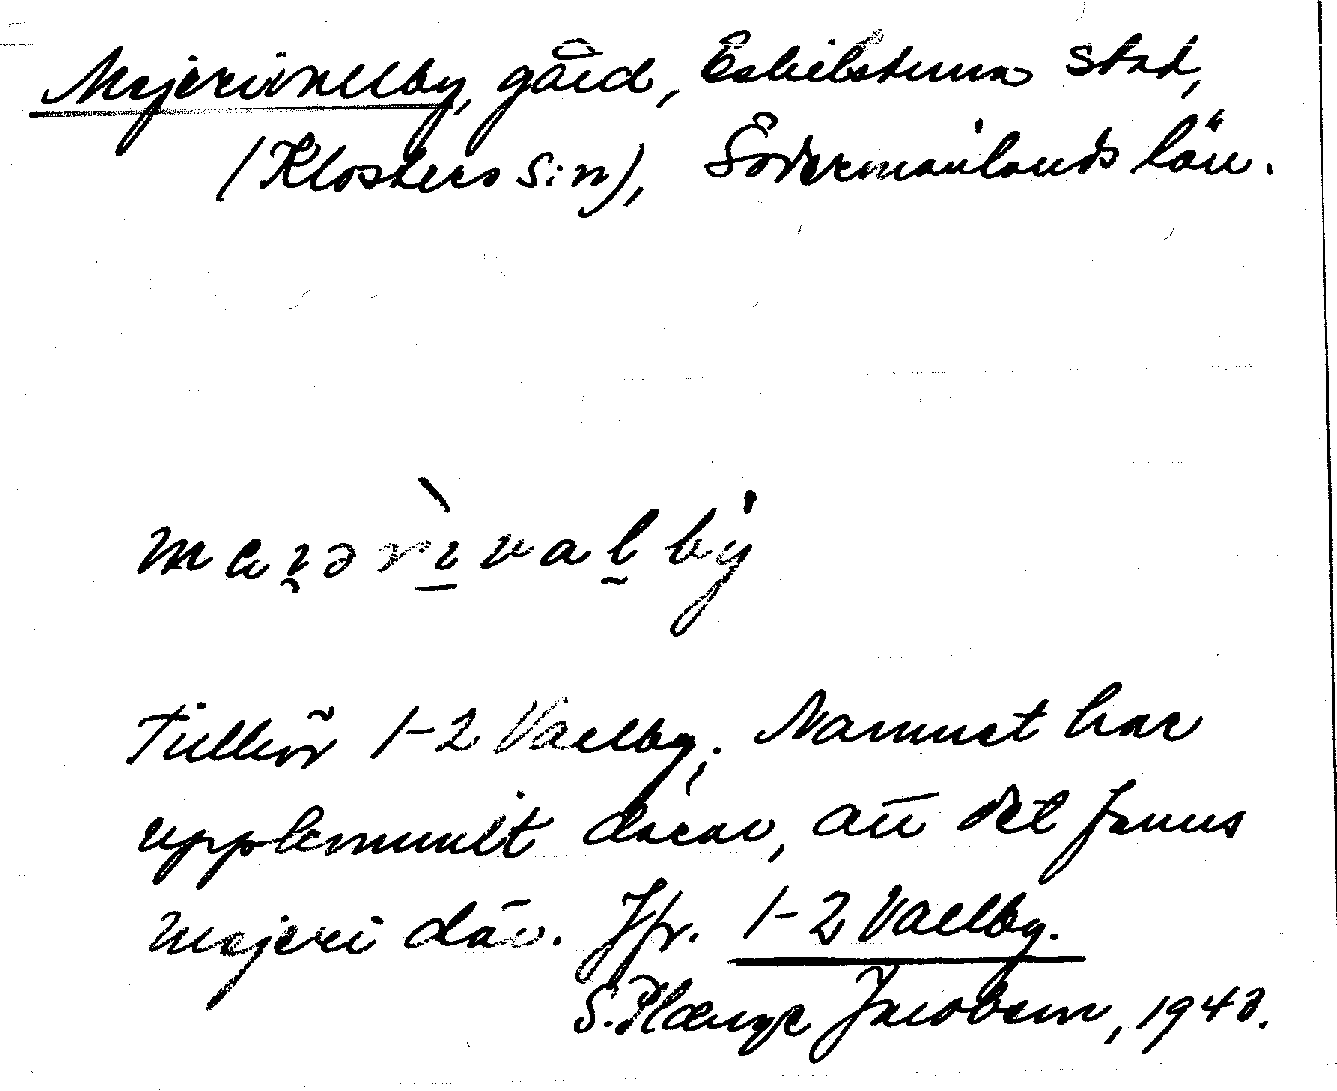 Majerivallby, gård, Eskilstuna stad,
(Klosters s:n), Södermanlands län.
Tillhör 1-2 Vallby. Namnet har
uppkommit därav, att det funnits
mejeri där. Jfr. 1-2 Vallby.
S. Plænge Jacobson, 1943.